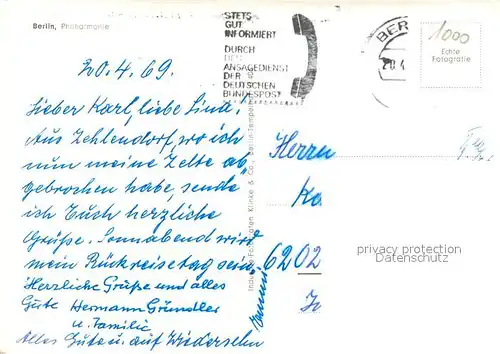 Berlin, Philharmonie
STETS
GUT
INFORMIERT
DURCH
DEN
ANSAGEDIENST
DER
DEUTSCHEN
BUNDESPOST
BER
20.4
1000
Echte
Fotografie
20.4.69.
Lieber Karl, liebe Lina!
Aus Zehlendorf, wo ich
nun meine Zelte ab,
gebrochen habe, sende
ich Euch herzliche
Grüße. Sonnabend wird
mein Rückreisetag sein.
Herzliche Grüße und alles
Gute Hermann Gründler
u. Familie
Alles Gute u. auf Wiedersehn
Klinke & Co., Berlin-Tempel
Herrn
Ka
6202
privacy protection
Datenschutz